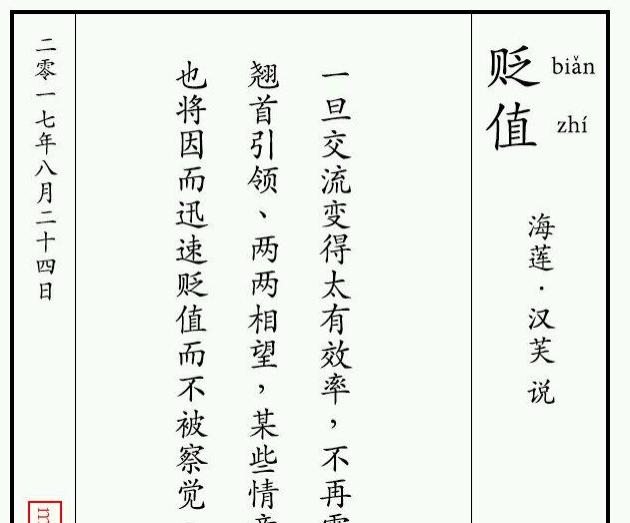 贬值
biǎn
zhí
海莲·汉芙 说
一旦交流变得太有效率，不再
翘首引领、两两相望，某些情
也将因而迅速贬值而不被察觉
二零一七年八月二十四日